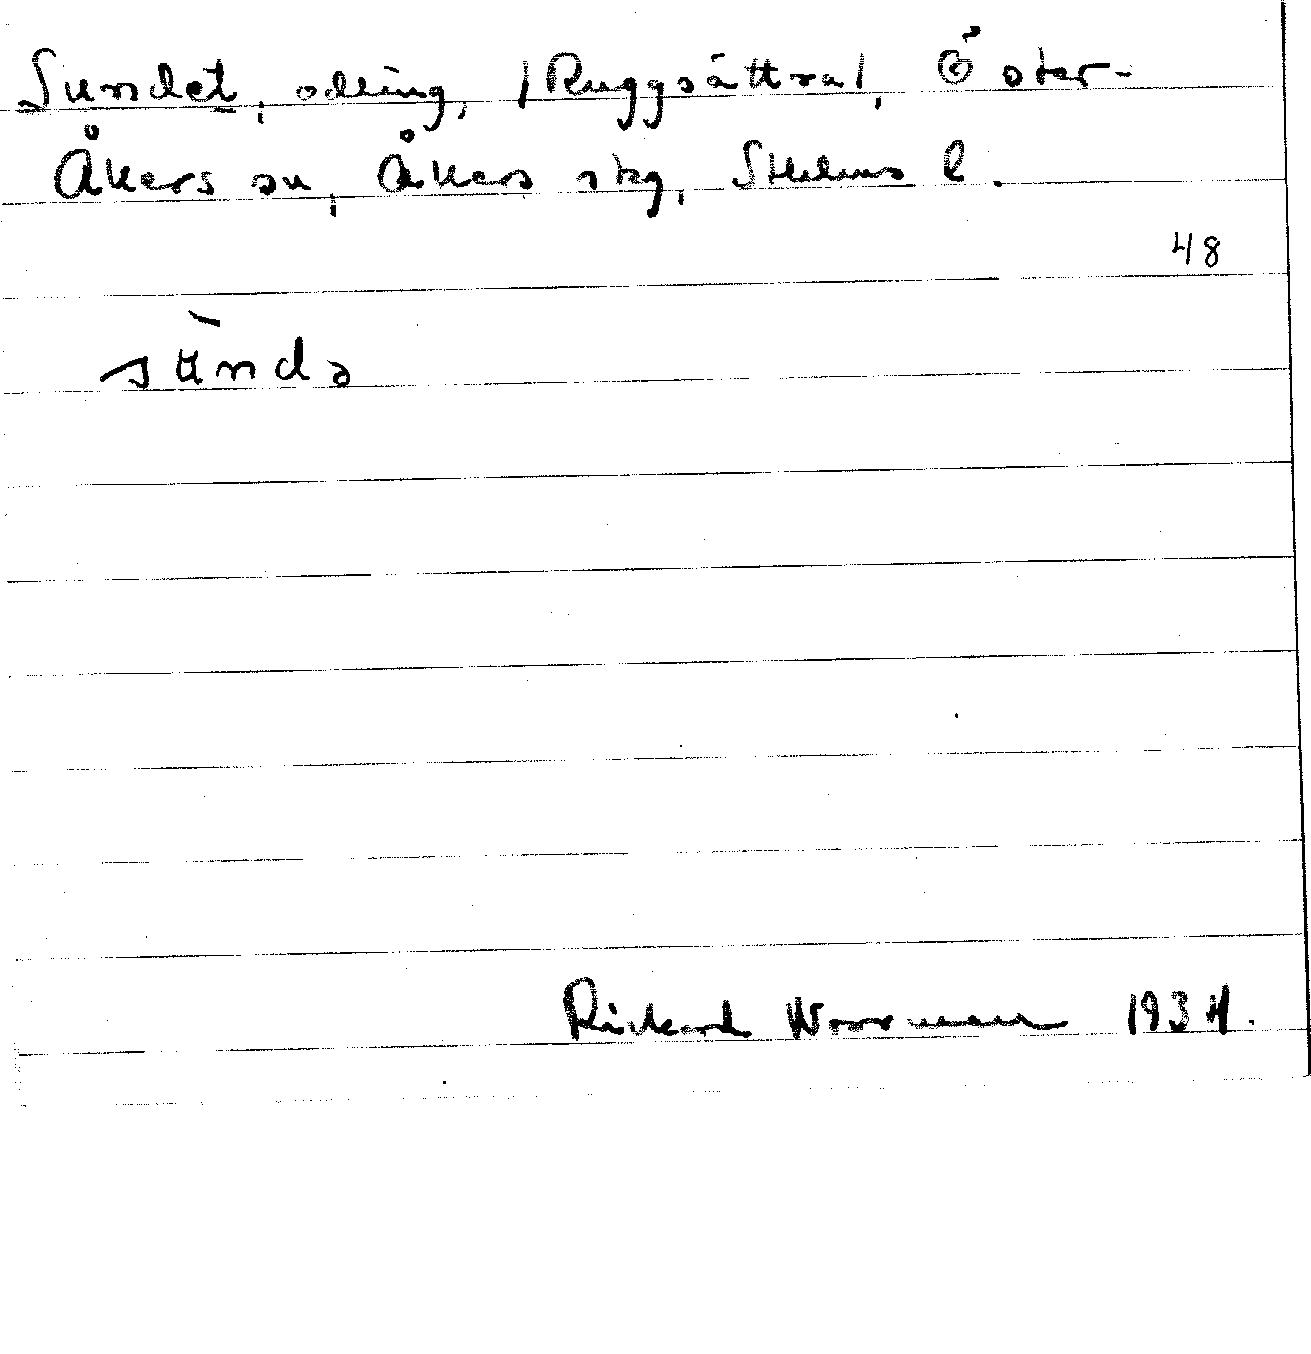 Sundet, odling, /Ruggsättra/, Öster-
Åkers sn, Åkers skg, Sthlms l.
48
Rickard Worrman 1934.